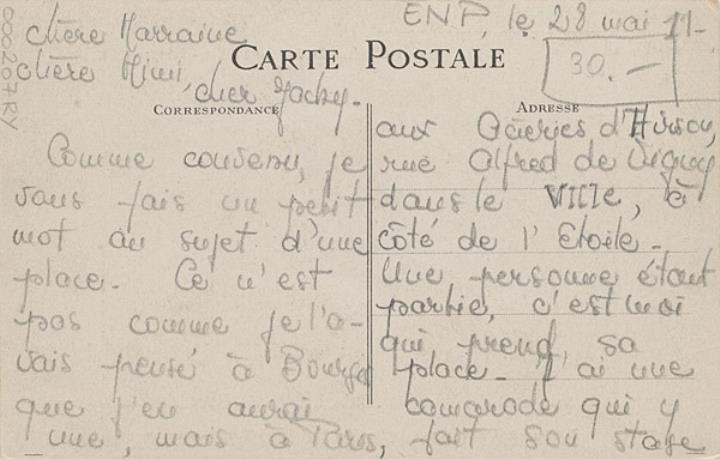 000207RY
chère Marraine
chère Mimi,
cher Jacky.
ENP, le 28 mai 11-
30.—
CARTE POSTALE
CORRESPONDANCE
ADRESSE
Comme convenu, je
vous fais un petit
mot au sujet d'une
place. Ce n'est
pas comme je l'a-
vais pensé à Bourges
que j'en aurai
une, mais à Paris,
aux Galeries d'
rue Alfred de Vigny
dans le VILLE, à
côté de l'Etoile.
Une personne étant
partie, c'est moi
qui prend sa
place. J'ai une
camarade qui y
fait son stage